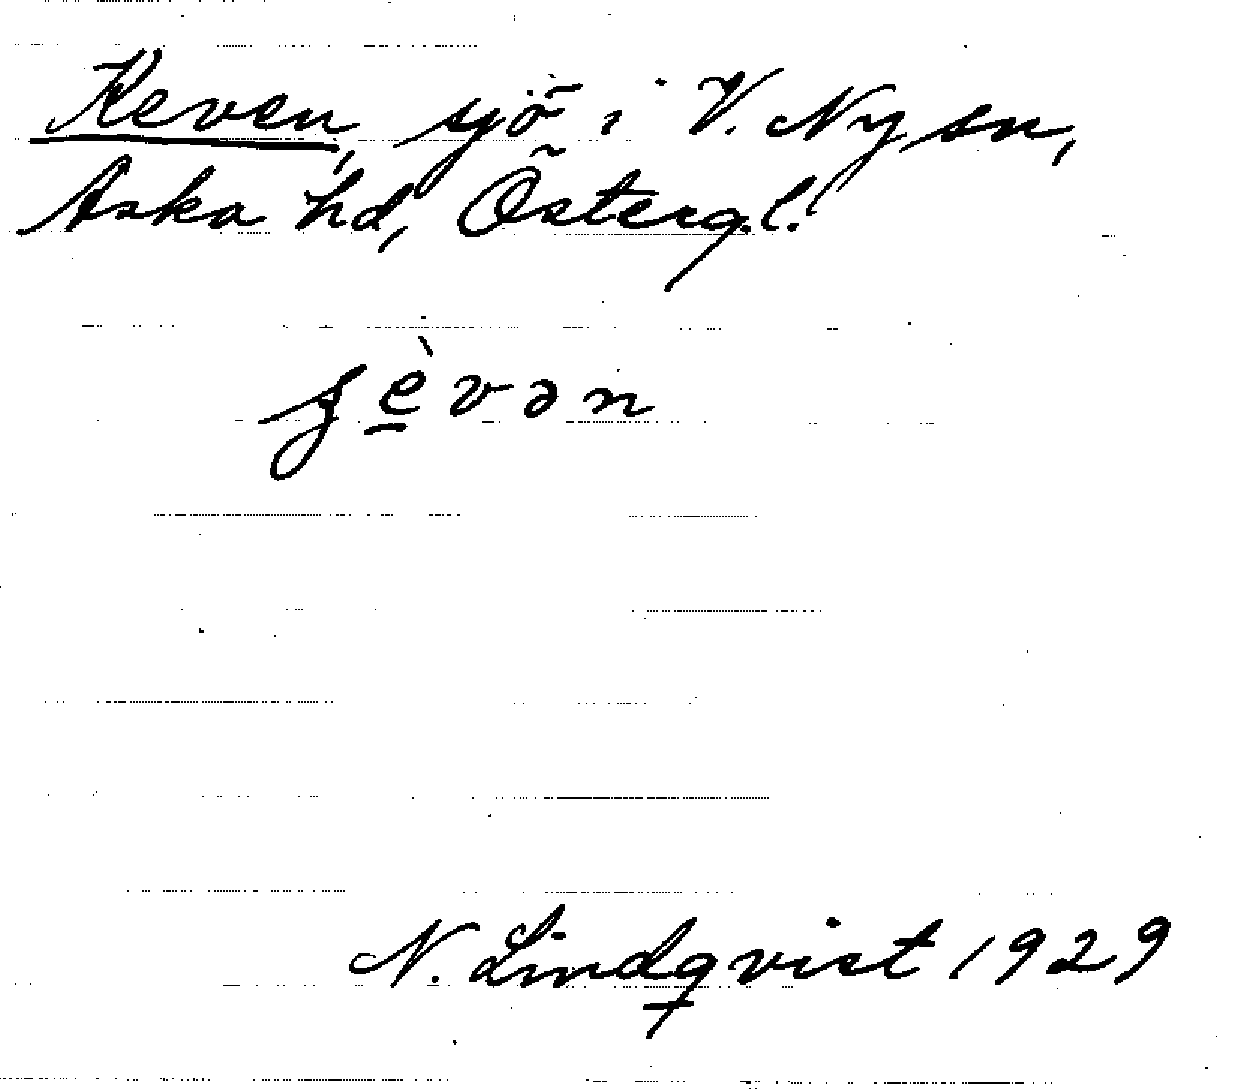 Keven, sjö i V. Ny sn,
Aska hd, Österg.l.
N. Lindqvist 1929